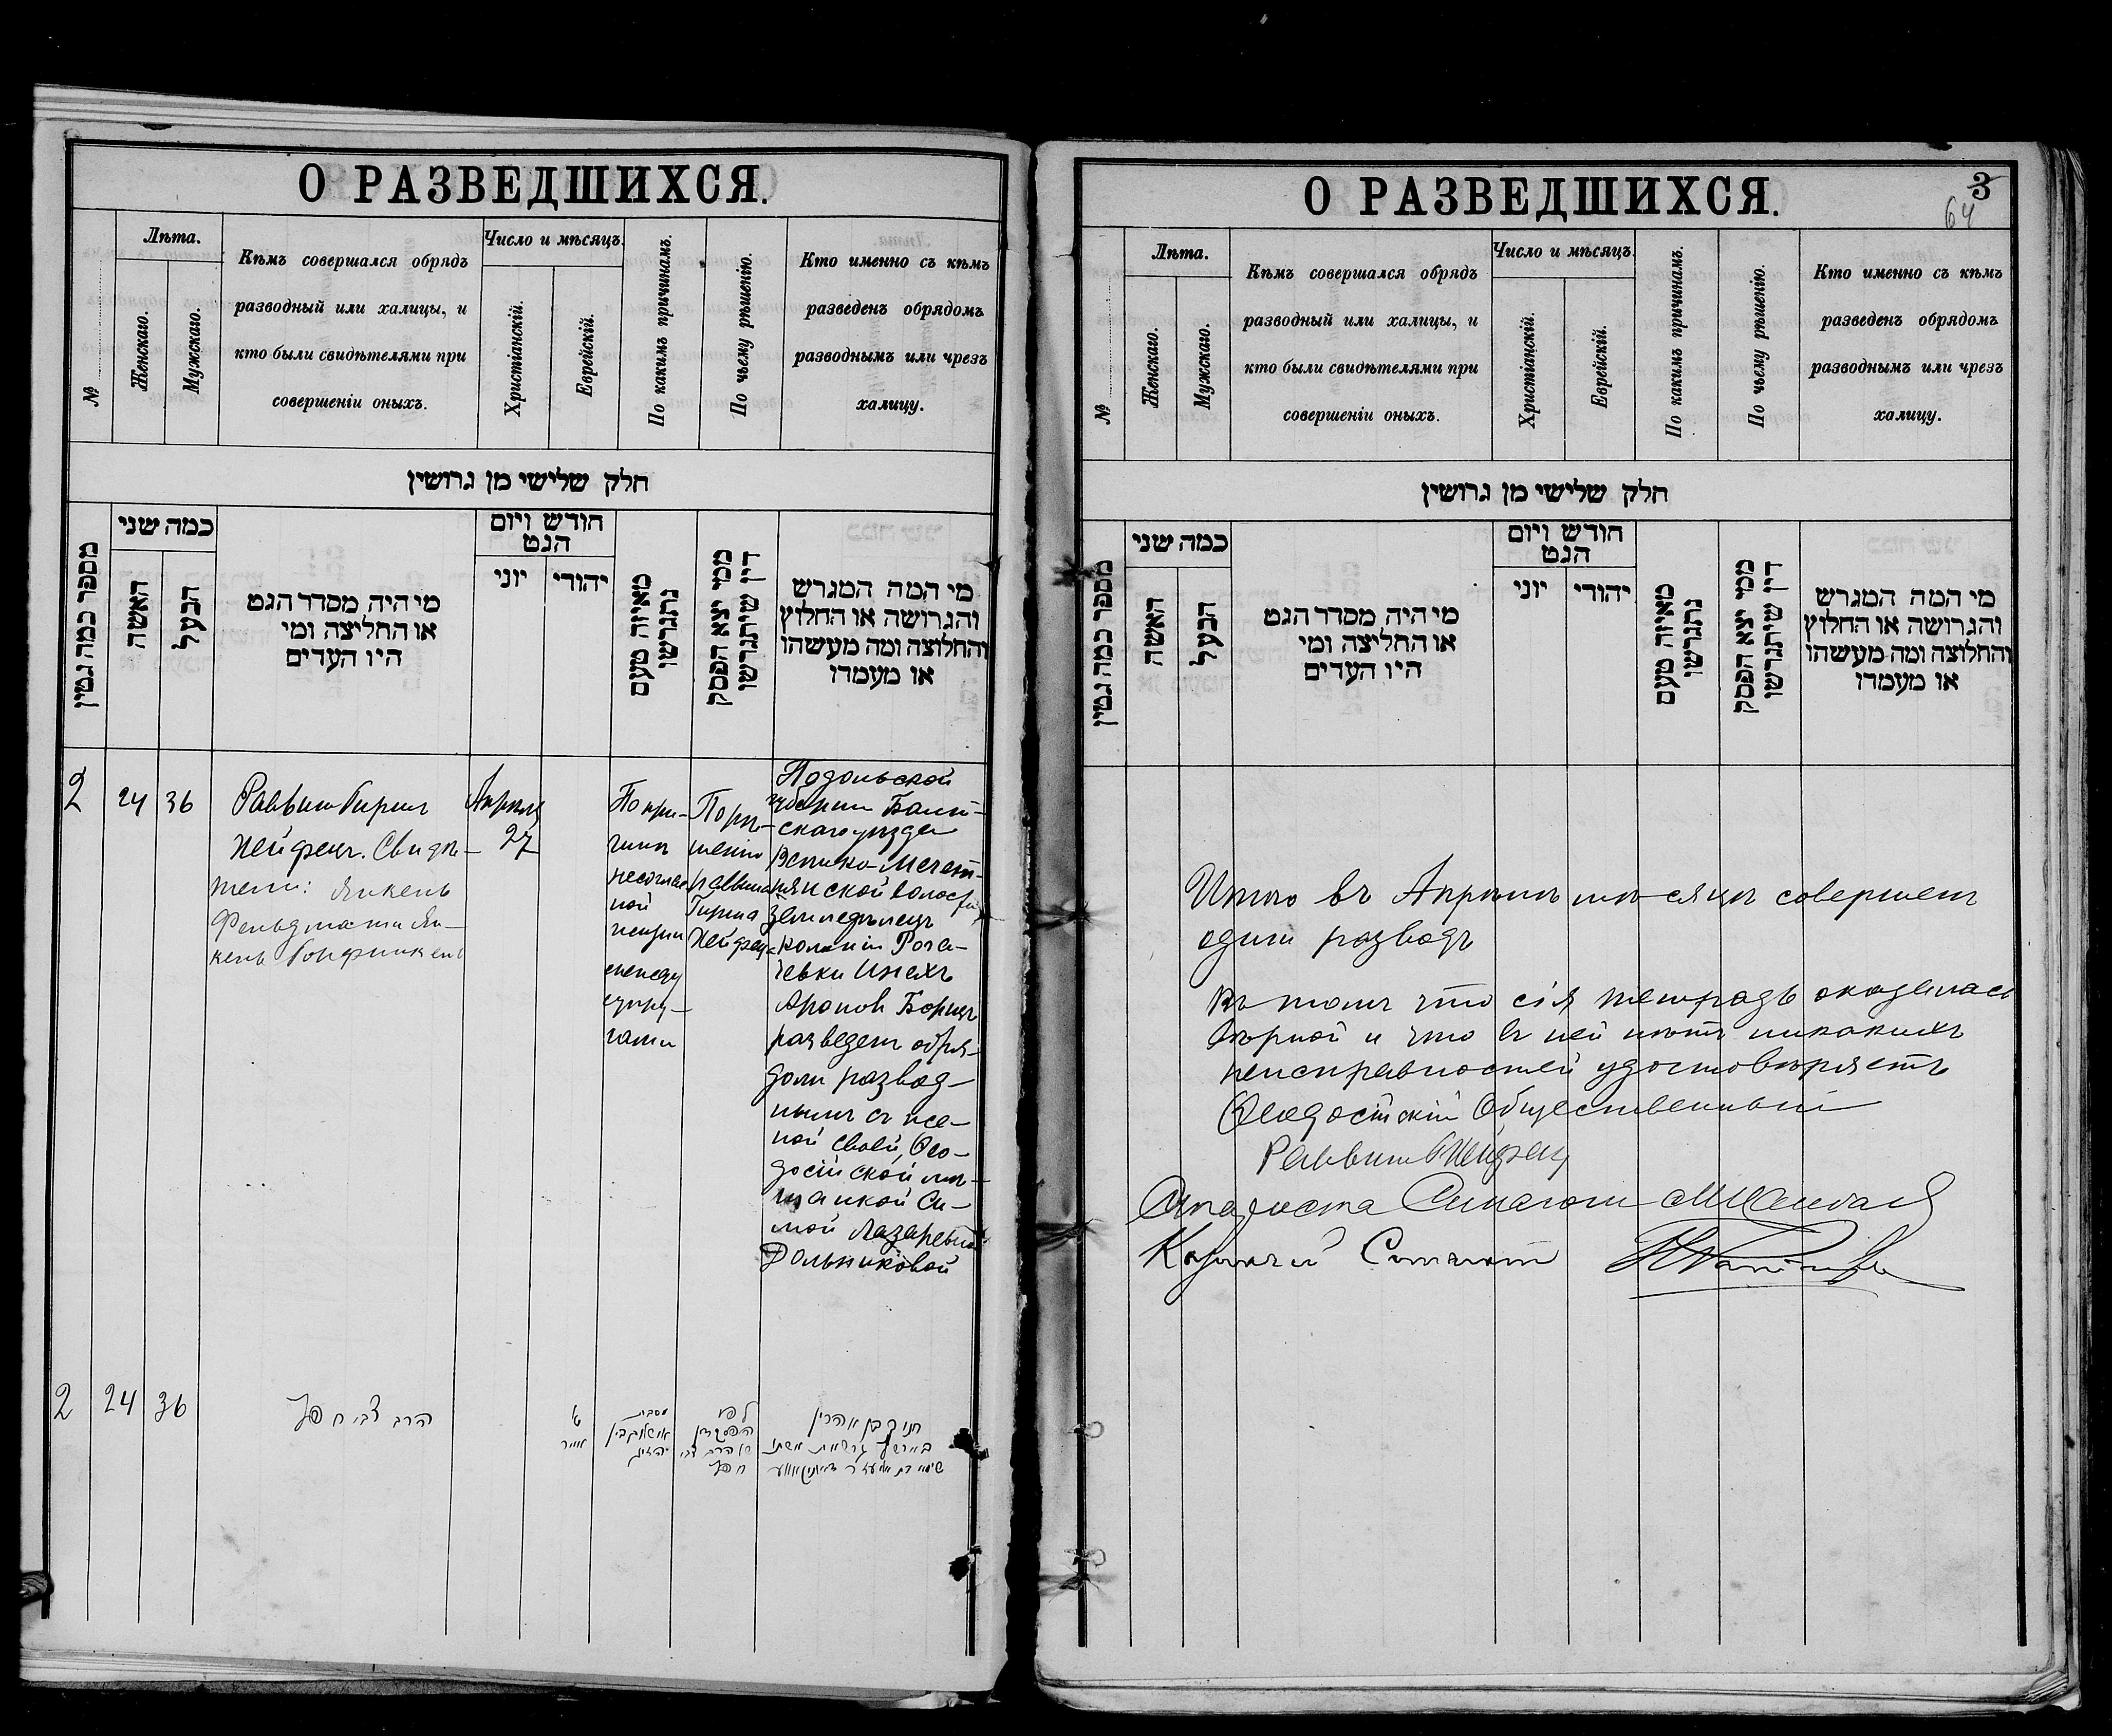 О РАЗВЕДШИХСЯ.
№
Лѣта.
Женскаго.
Мужскаго.
Кѣмъ совершался обрядъ
разводный или халицы, и
кто были свидѣтелями при
совершеніи оныхъ.
Число и мѣсяцъ.
Христіанскій.
Еврейскій.
По какимъ причинамъ.
По чьему рѣшенію.
Кто именно съ кѣмъ
разведенъ обрядомъ
разводнымъ или чрезъ
халицу.
חלק שלישי מן גרושין
מספר כמה גטין
כמה שני
האשה
הבעל
מי היה מסדר הגט
או החליצה ומי
היו העדים
חודש ויום
הגט
יוני
יהודי
מאיזה טעם
נתגרשו
ממי יצא הפסק
דין שיתגרשו
מי המה המגרש
והגרושה או החלוץ
והחלוצה ומה מעשהו
או מעמדו
2
24
36
Раввинъ Гиршъ
Хейфецъ. Свидѣ-
тели: Янкель
Фельдманъ и Ян-
кель
Апрѣля
27
По при-
чинѣ
несоглас
ной
жизни
между
супру-
гами
По рѣ-
шенію
раввина
Гирша
Хейфеца
Подольской
губерніи Балт-
скаго уѣзда
Велико-Мечет-
нянской волости
Земледѣлецъ
колоніи Рога-
чевки
Ароновъ
разведенъ обря-
домъ развод-
нымъ съ же-
ной своей, Ѳео-
досійской мѣ-
щанкой Си-
мой Лазаревной
Дольниковой
2
24
36
הרב צבי חפץ
ט
אייר
מסבת
לפי
הפסק דין
של הרב צבי
חפץ
חנוך בן אהרן
גרש את אשתו
О РАЗВЕДШИХСЯ.
3
64
№
Лѣта.
Женскаго.
Мужскаго.
Кѣмъ совершался обрядъ
разводный или халицы, и
кто были свидѣтелями при
совершеніи оныхъ.
Число и мѣсяцъ.
Христіанскій.
Еврейскій.
По какимъ причинамъ.
По чьему рѣшенію.
Кто именно съ кѣмъ
разведенъ обрядомъ
разводнымъ или чрезъ
халицу.
חלק שלישי מן גרושין
מספר כמה גטין
כמה שני
האשה
הבעל
מי היה מסדר הגט
או החליצה ומי
היו העדים
חודש ויום
הגט
יוני
יהודי
מאיזה טעם
נתגרשו
ממי יצא הפסק
דין שיתגרשו
מי המה המגרש
והגרושה או החלוץ
והחלוצה ומה מעשהו
או מעמדו
Итого въ Апрѣлѣ мѣсяцѣ совершенъ
одинъ разводъ
Въ томъ что сія тетрадь оказалась
вѣрной и что въ ней нѣтъ никакихъ
неисправностей удостовѣряетъ
Ѳеодосійскій Общественный
Раввинъ Хейфецъ
Староста Синагоги
Казначей Синагоги